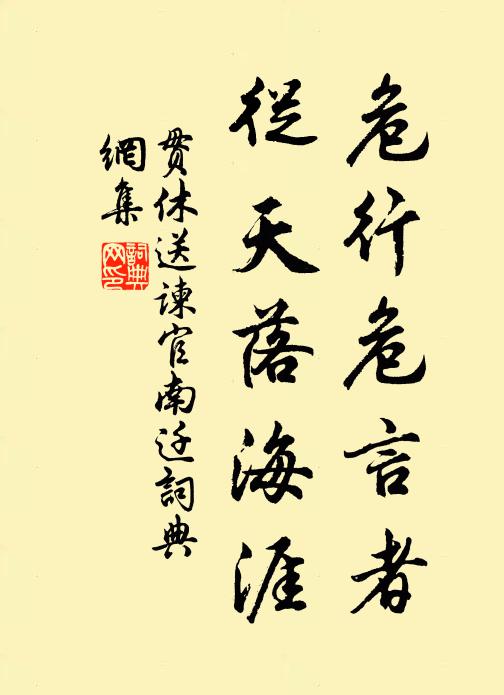 危行危言者
從天落海涯
貫休送諫官南迁詞典
網集
詞典網印